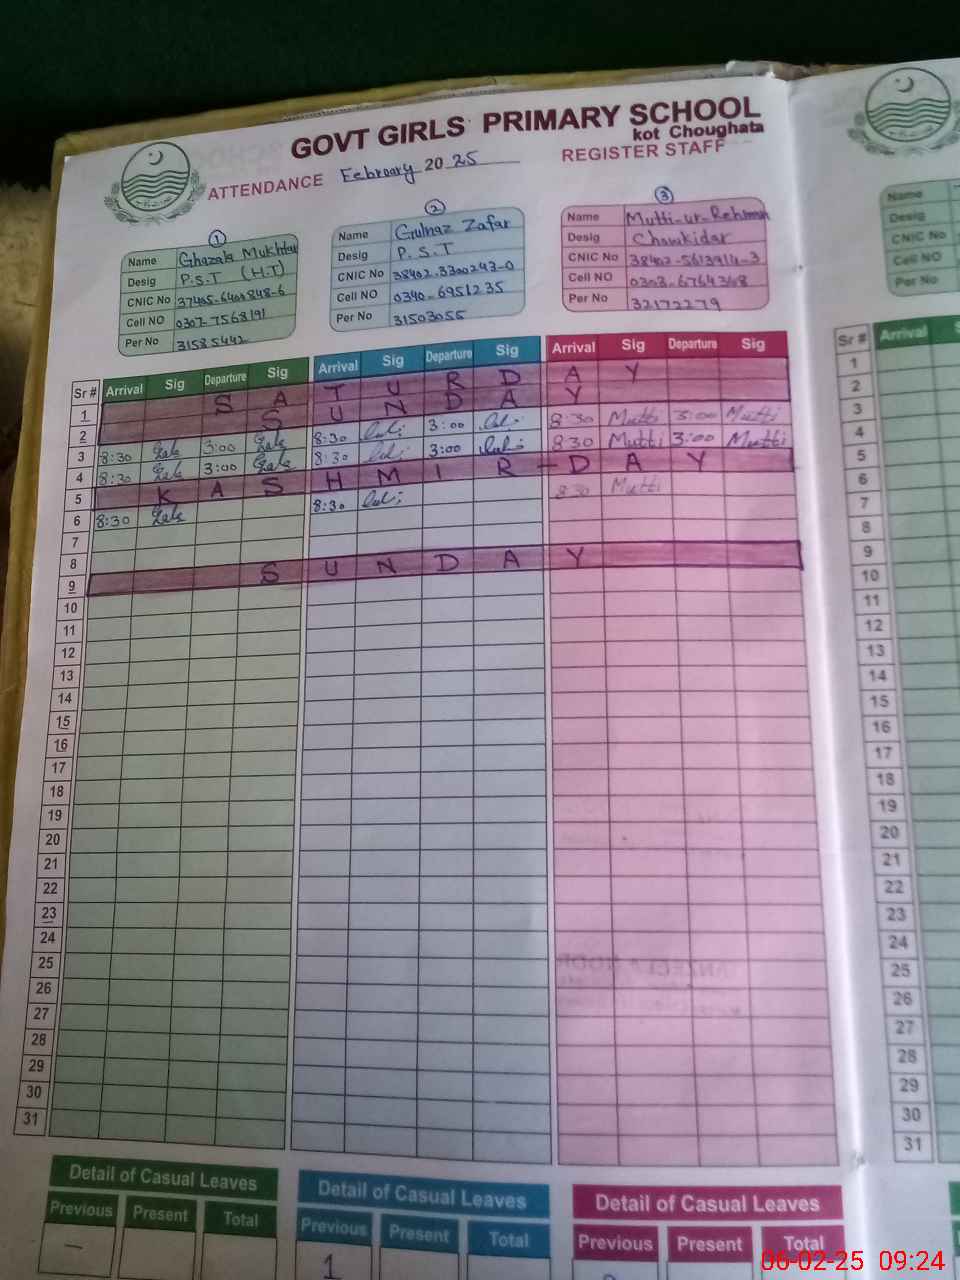 GOVT GIRLS PRIMARY SCHOOL
kot Choughata
ATTENDANCE February 2025 REGISTER STAFF
1 2 3
Name Ghazala Mukhtar
Desig P.S.T (H.T)
CNIC No
Cell NO 0307-7568191
Per No 31585442
Name Gulnaz Zafar
Desig P.S.T
CNIC No 38402-3300243-0
Cell NO 0340-6951235
Per No 31503055
Name Mutti-ur-Rehman
Desig Chowkidar
CNIC No 38402-5613914-3
Cell NO 0303-6764368
Per No 32172279
Name
Desig
CNIC No
Cell NO
Per No
Sr # Arrival Sig Departure Sig Arrival Sig Departure Sig Arrival Sig Departure Sig
1 SATURDAY
2 SUNDAY
3 8:30 3:00 8:30 3:00 8:30 Mutti 3:00 Mutti
4 8:30 3:00 8:30 3:00 8:30 Mutti 3:00 Mutti
5 KASHMIR-DAY
6 8:30 8:30 8:30 Mutti
7
8
9 SUNDAY
10
11
12
13
14
15
16
17
18
19
20
21
22
23
24
25
26
27
28
29
30
31
Sr # Arrival
1
2
3
4
5
6
7
8
9
10
11
12
13
14
15
16
17
18
19
20
21
22
23
24
25
26
27
28
29
30
31
Detail of Casual Leaves Detail of Casual Leaves Detail of Casual Leaves
Previous Present Total Previous Present Total Previous Present Total
– 1
06-02-25 09:24